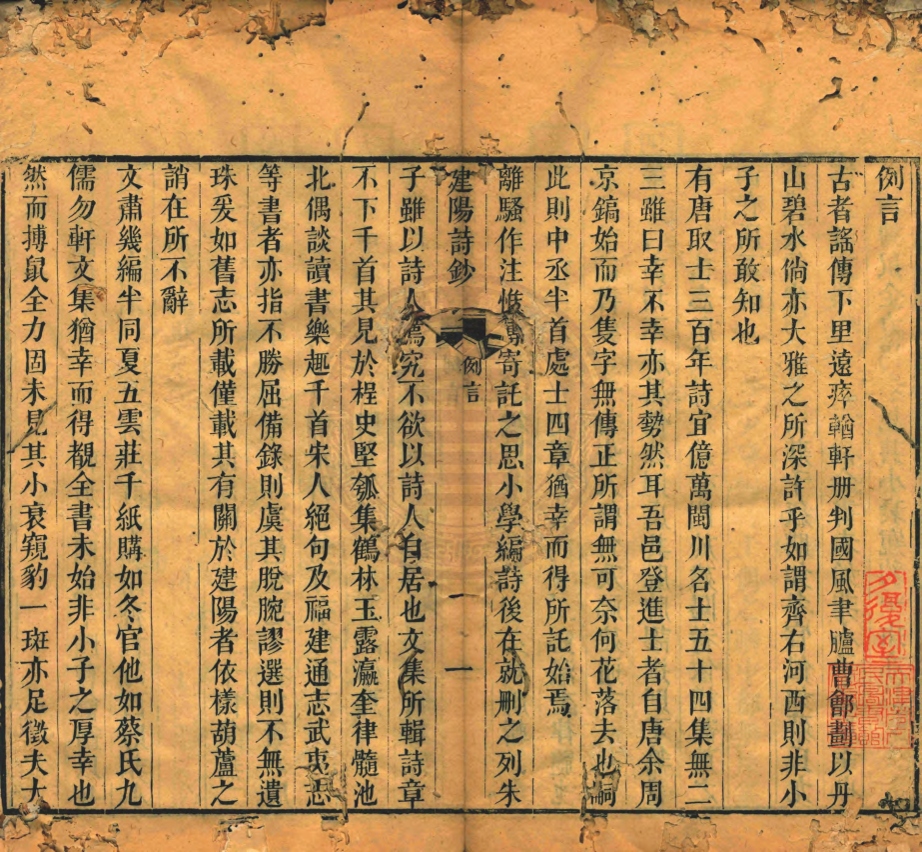 例言
古者謠傳下里遠瘁輶軒册判國風聿臚曹鄶劃以丹
山碧水倘亦大雅之所深許乎如謂齊右河西則非小
子之所敢知也
有唐取士三百年詩宜億萬閩川名士五十四集無二
三雖曰幸不幸亦其勢然耳吾邑登進士者自唐余周
京鎬始而乃隻字無傳正所謂無可奈何花落去也嗣
此則中丞半首處士四章猶幸而得所託始焉
離騷作注惟寄託之思小學編詩後在就删之列朱
建陽詩鈔
例言
一
子雖以詩人薦究不欲以詩人自居也文集所輯詩章
不下千首其見於桯史堅瓠集鶴林玉露瀛奎律髓池
北偶談讀書樂趣千首宋人絕句及福建通志武夷志
等書者亦指不勝屈備錄則虞其脫腕謬選則不無遺
珠爰如舊志所載僅載其有關於建陽者依樣葫蘆之
誚在所不辭
文肅幾編半同夏五雲莊千紙購如冬官他如蔡氏九
儒勿軒文集猶幸而得覩全書未始非小子之厚幸也
然而搏鼠全力固未見其小衰窺豹一斑亦足徵夫大